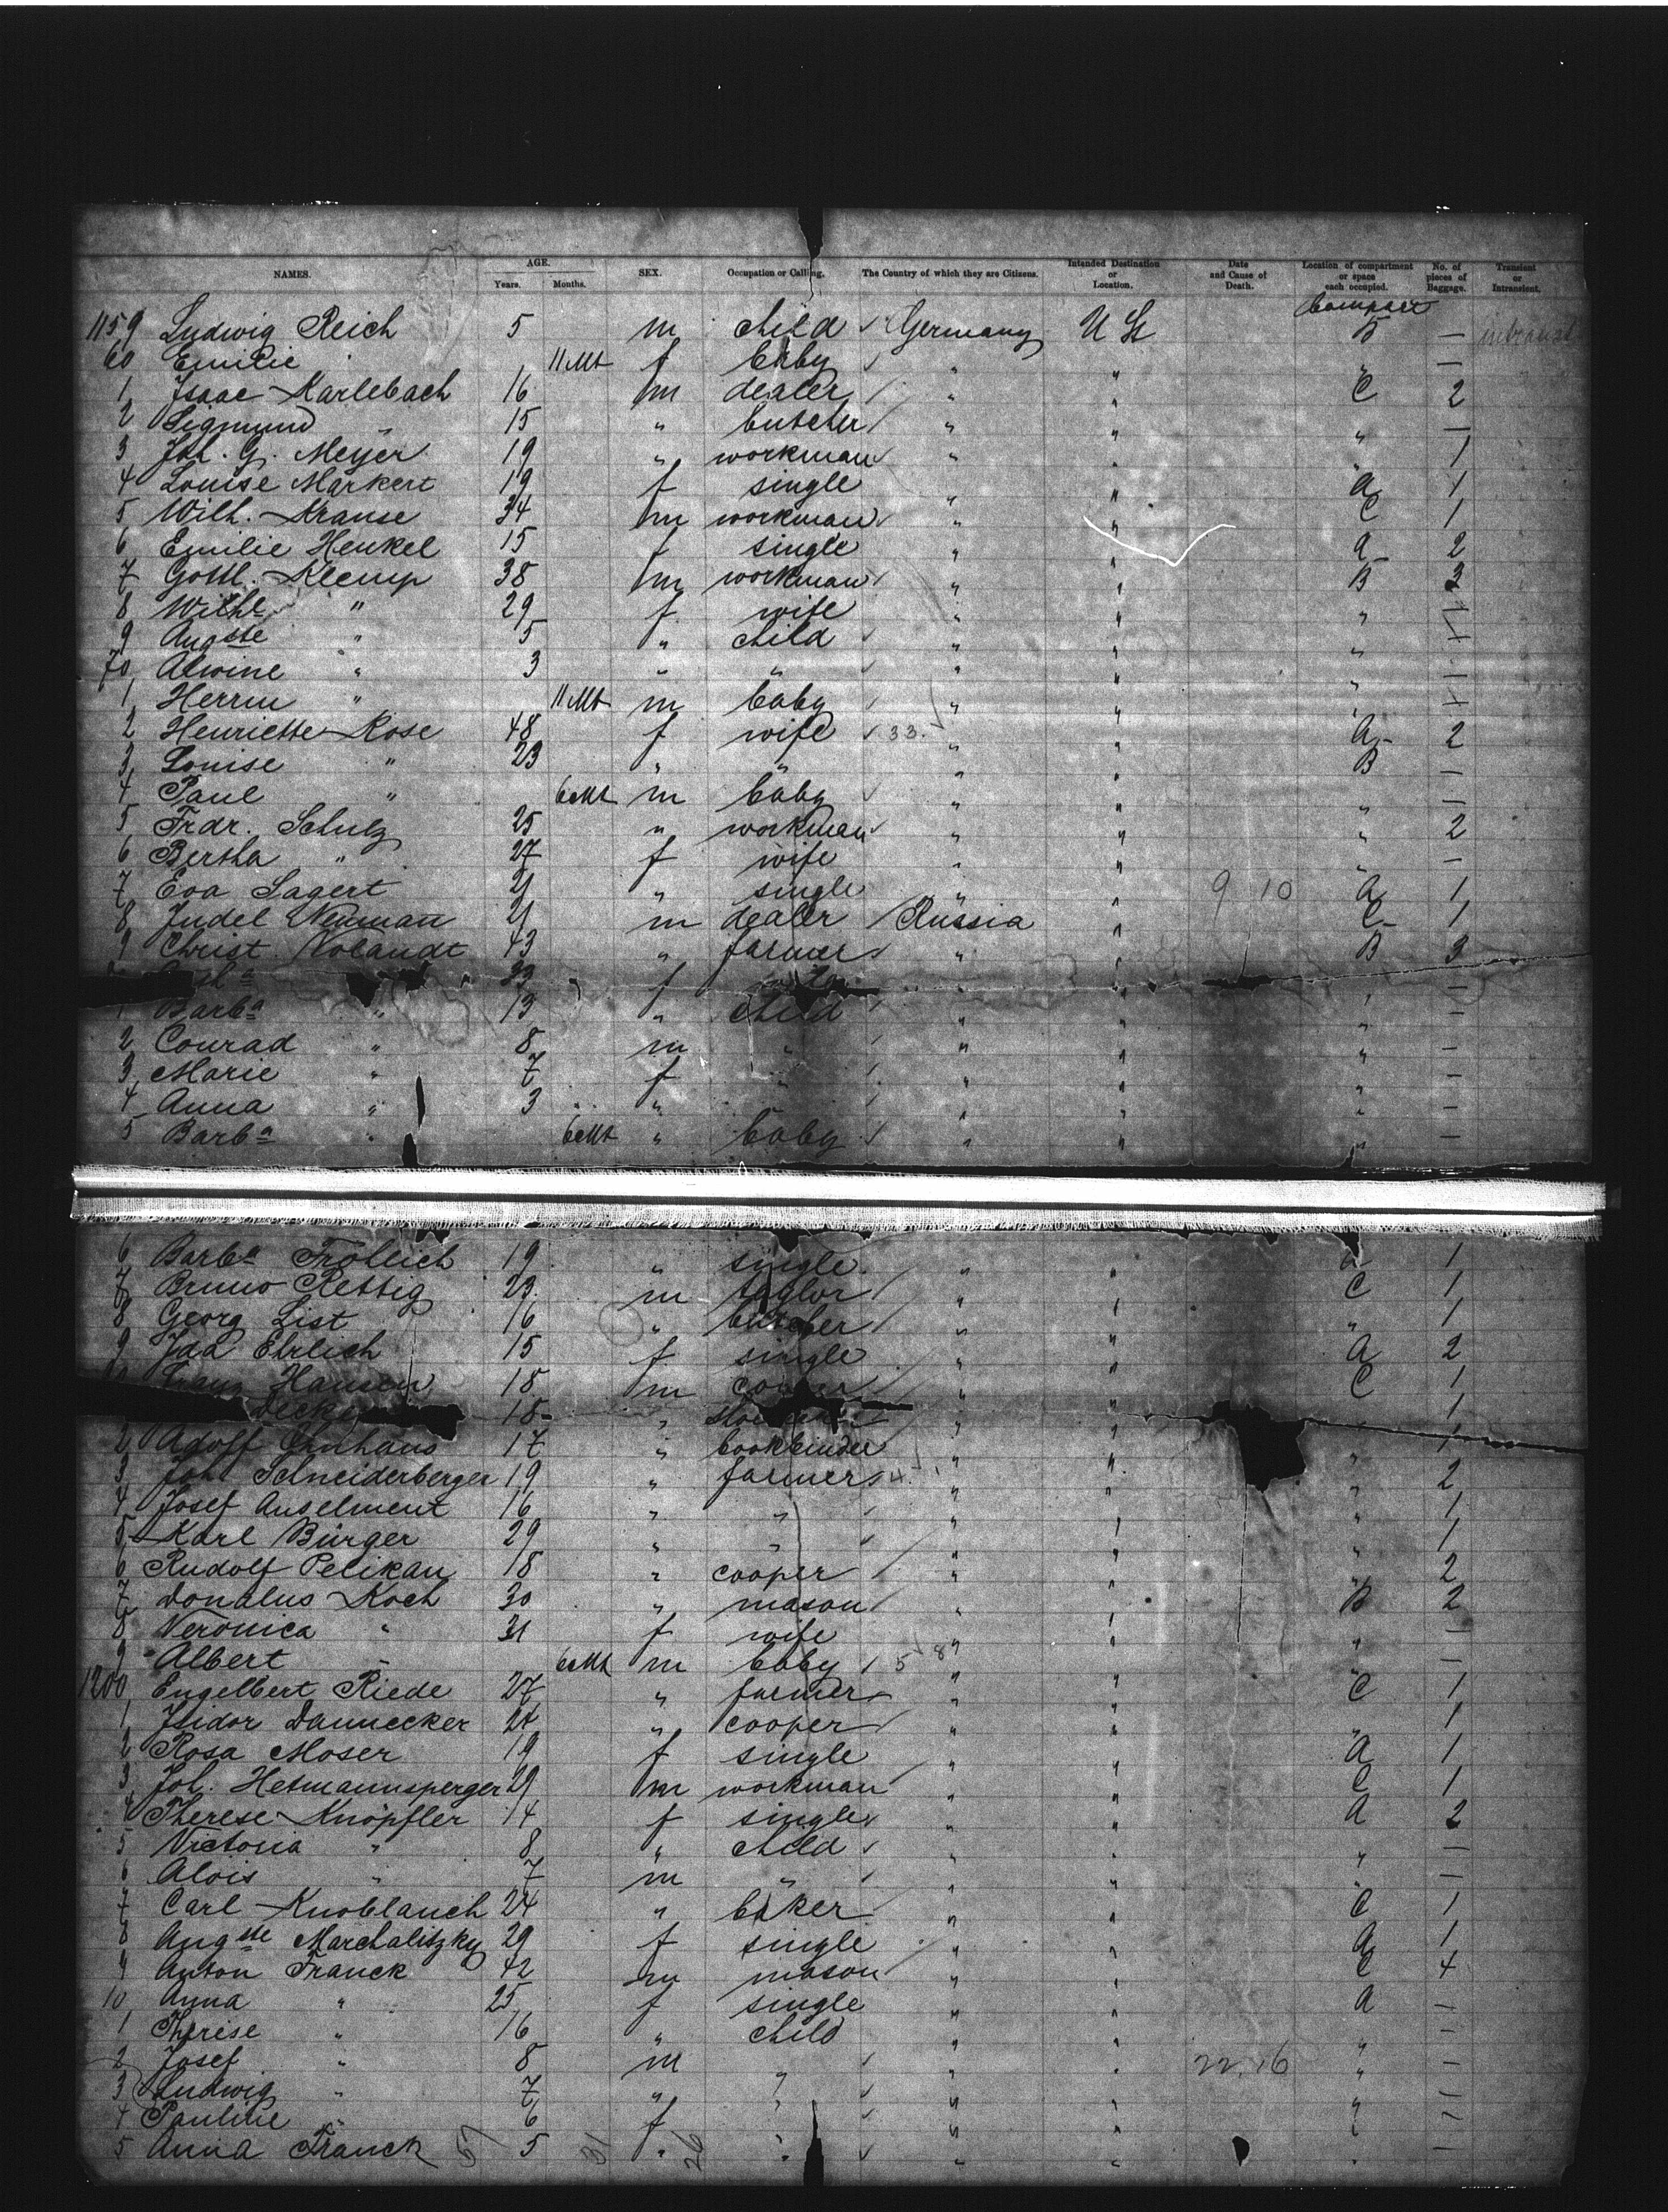 NAMES. AGE. Years. Months. SEX. Occupation or Calling. The Country of which they are Citizens. Intended Destination or Location. Date and Cause of Death. Location of compartment or space each occupied. No. of pieces of Baggage. Transient or Intransient.
Compart
1159 Ludwig Reich 5 m child Germany U St B —
60 Emilie 11 Mt f baby " " " —
1 Isaac Karlebach 16 m dealer " " C 2
2 Sigmund " 15 " butcher " " " —
3 Joh. G. Meyer 19 " workman " " " 1
4 Louise Markert 19 f single " " a 1
5 Wilh. Krause 34 m workman " " C 1
6 Emilie Henkel 15 f single " " a 2
7 Gottl. Klemp 38 m workman " " B 3
8 Wilhe " 29 f wife " " "
9 Augste " 5 " child " " "
70 Alwine " 3 " " " " "
1 Herrm " 11 Mt m baby " " "
2 Henriette Rose 48 f wife 33. " " a 2
3 Louise " 23 " " " " B —
4 Paul " 6 Mt m baby " " " —
5 Frdr. Schulz 25 " workman " " " 2
6 Bertha " 27 f wife " " " —
7 Eva Sagert 21 " single " " 9 10 a 1
8 Judel Neuman 21 m dealer Russia " C 1
9 Christ. Nolandt 43 " farmer " " B 3
33 f " " " —
1 Barba " 13 " child " " " —
2 Conrad " 8 m " " " " —
3 Marie " 7 f " " " " —
4 Anna " 3 " " " " —
5 Barba " 6 Mt " baby " " " —
6 Barba Frölich 19 " single " " a 1
7 Bruno Rettig 23 m taylor " " C 1
8 Georg List 16 " butcher " " " 1
9 Ida Ehrlich 15 f single " " a 2
Hansen 18 m cooper " " C 1
Decke 18 " " " 1
2 Adolf 17 " bookbinder " " " 1
3 Joh. Schneiderberger 19 " farmer 4. " " " 2
4 Josef Anselment 16 " " " " " 1
5 Karl Bürger 29 " " " " " 1
6 Rudolf Pelikan 18 " cooper " " " 2
7 Donatus Koch 30 " mason " " B 2
8 Veronica " 31 f wife " " " —
9 Albert " 6 Mt m baby 5 8 " " " —
1200 Engelbert Riede 27 " farmer " " C 1
1 Isidor Dannecker 24 " cooper " " " 1
2 Rosa Moser 19 f single " " a 1
3 Joh. Hetmannsperger 29 m workman " " C 1
4 Therese Knöpfler 14 f single " " a 2
5 Victoria " 8 " child " " " —
6 Alois " 7 m " " " " —
7 Carl Knoblauch 24 " baker " " C 1
8 Augste Marchalitzky 29 f single " " a 1
9 Anton Franck 42 m mason " " C 4
10 Anna " 25 f single " " a —
1 Therese " 16 " child " " " —
2 Josef " 8 m " " " 22. 16 " —
3 Ludwig " 7 " " " " " —
4 Pauline " 6 f " " " " —
5 Anna Franck 57 5 31 " 26 " " " " —